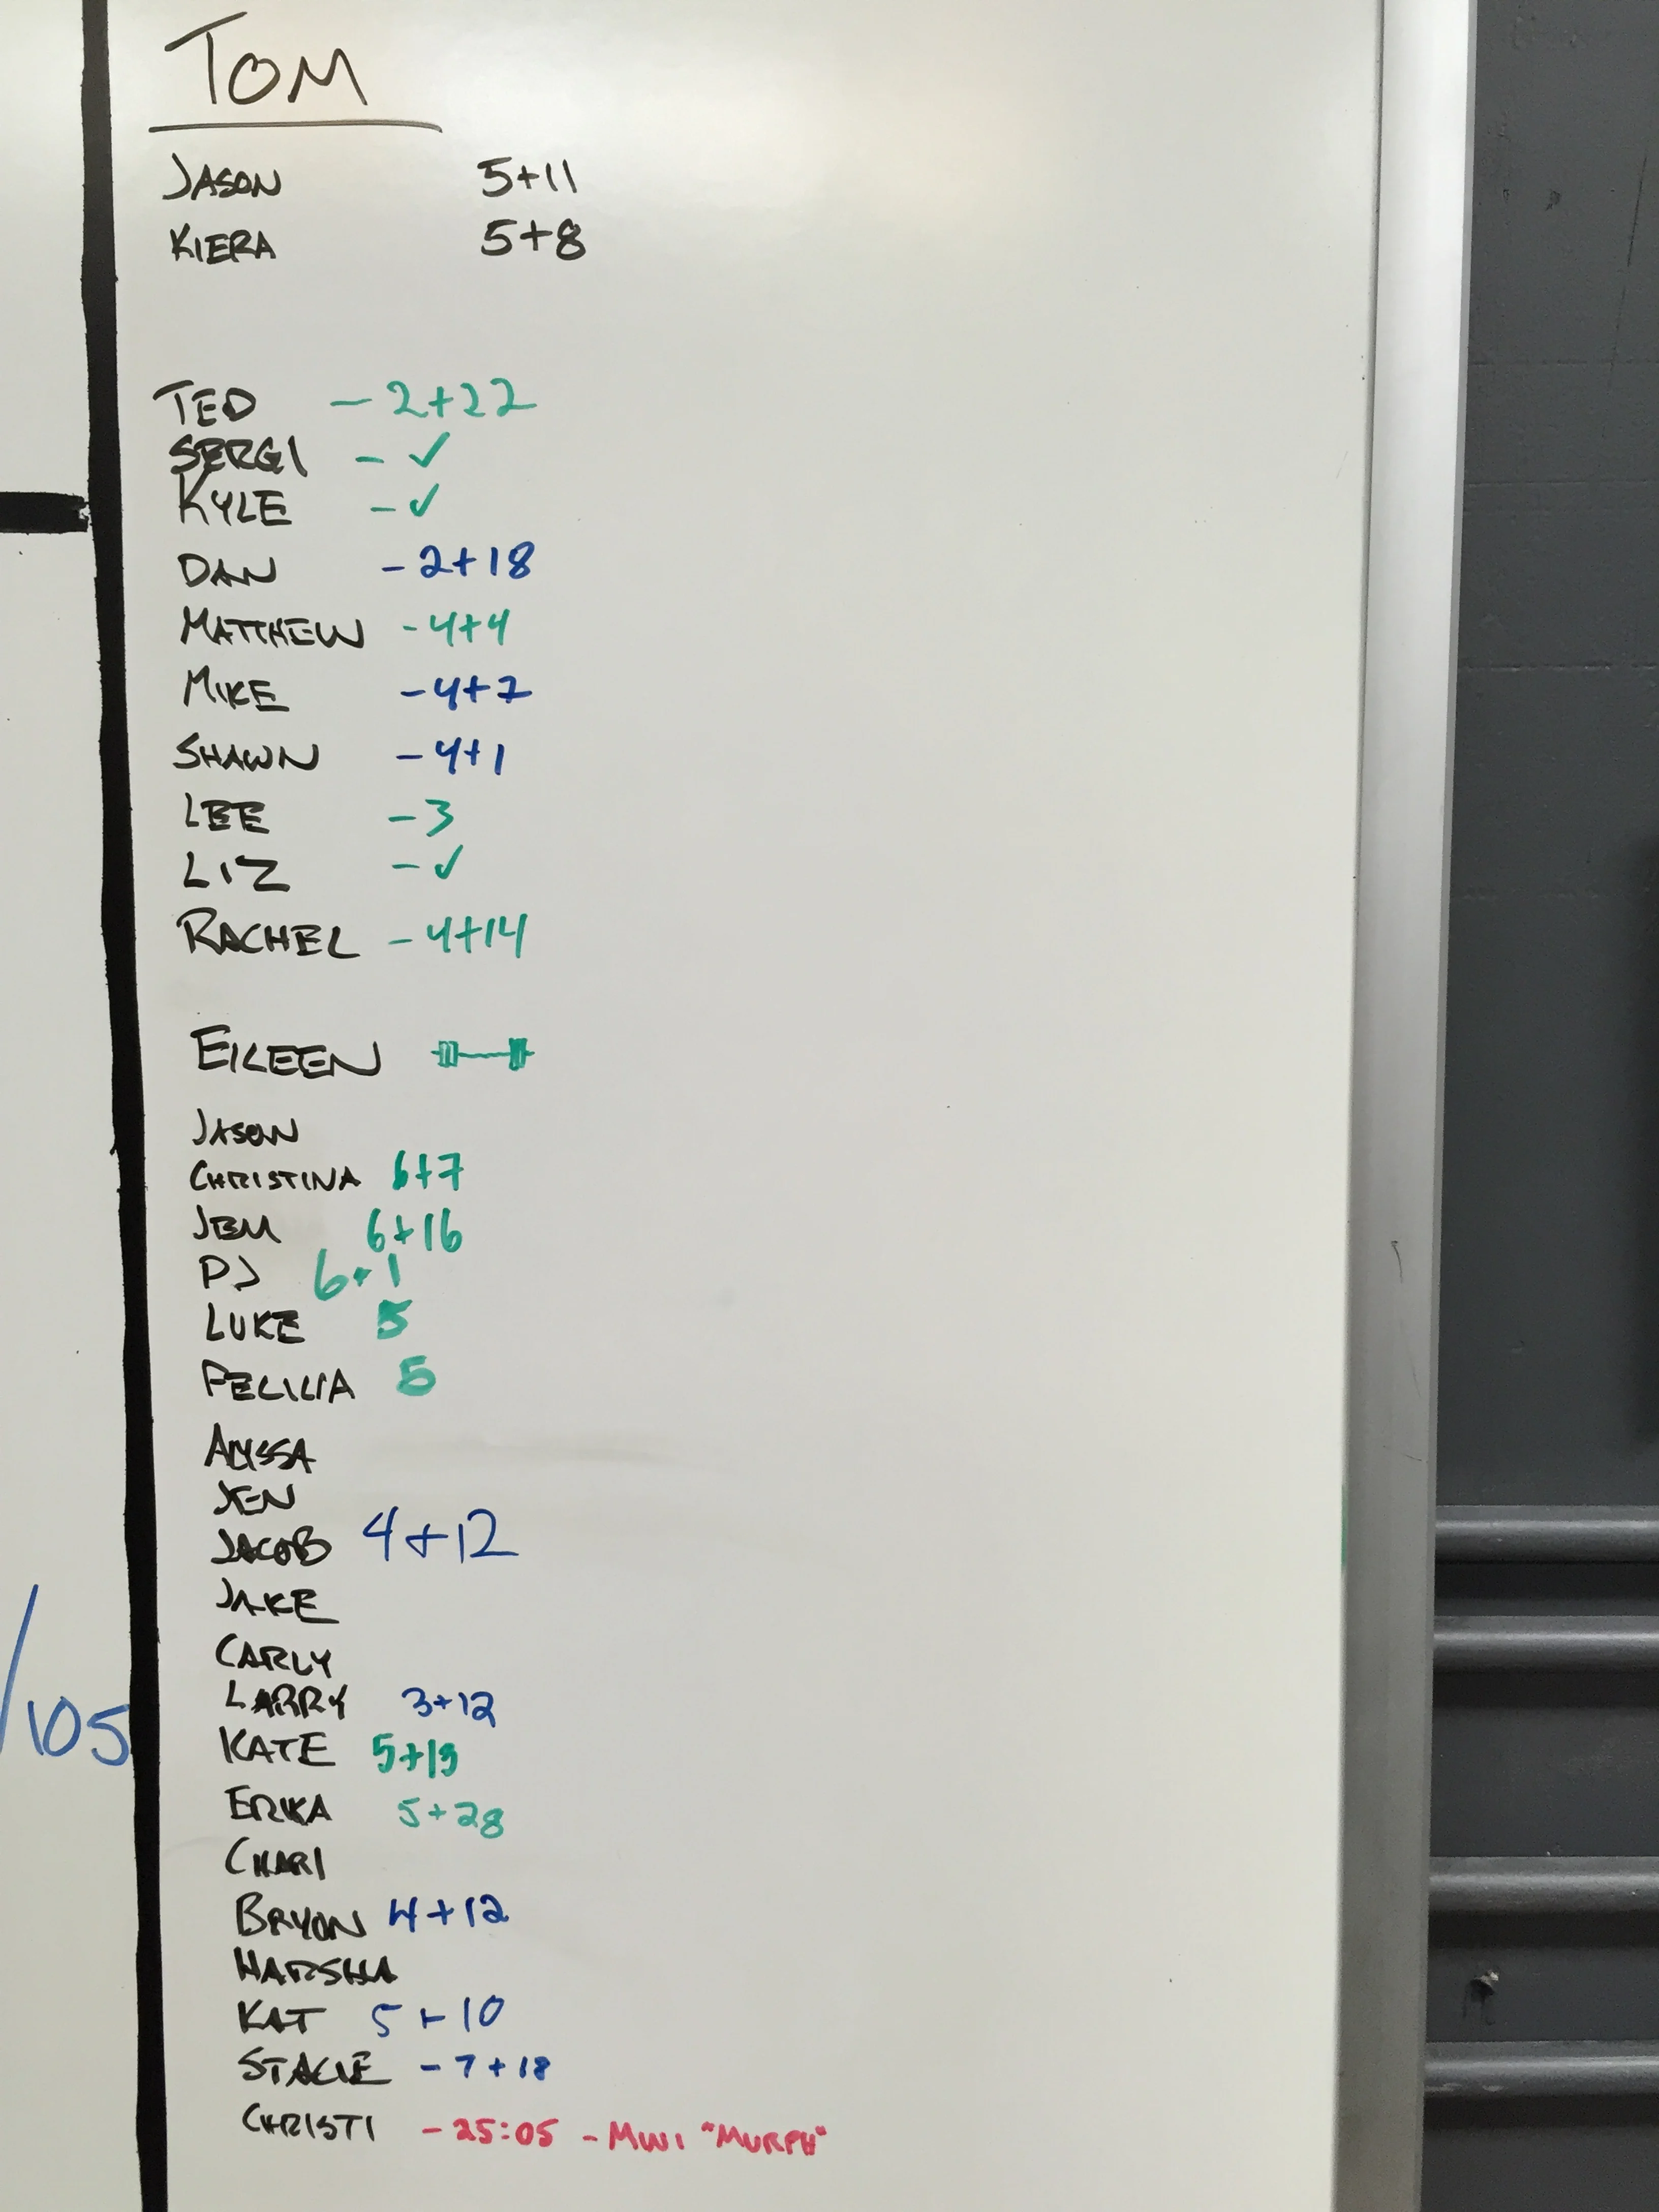 TOM
JASON 5+11
KIERA 5+8
TED - 2+22
SERGI - ✓
KYLE - ✓
DAN - 2+18
MATTHEW - 4+4
MIKE - 4+7
SHAWN - 4+1
LEE - 3
LIZ - ✓
RACHEL - 4+14
EILEEN
JASON
CHRISTINA 6+7
JEM 6+16
PJ 6+1
LUKE 5
FELICIA 5
ALYSSA
JEN
JACOB 4+12
JAKE
CARLY
LARRY 3+12
/105
KATE 5+19
ERIKA 5+28
CHARI
BRYON 4+12
HARSHA
KAT 5+10
STACIE - 7+18
CHRISTI - 25:05 - MINI "MURPH"